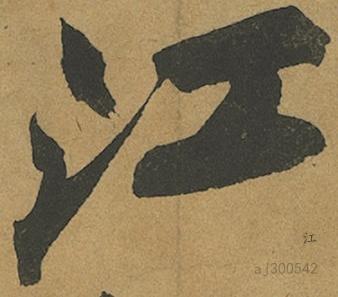 江
江
aj300542